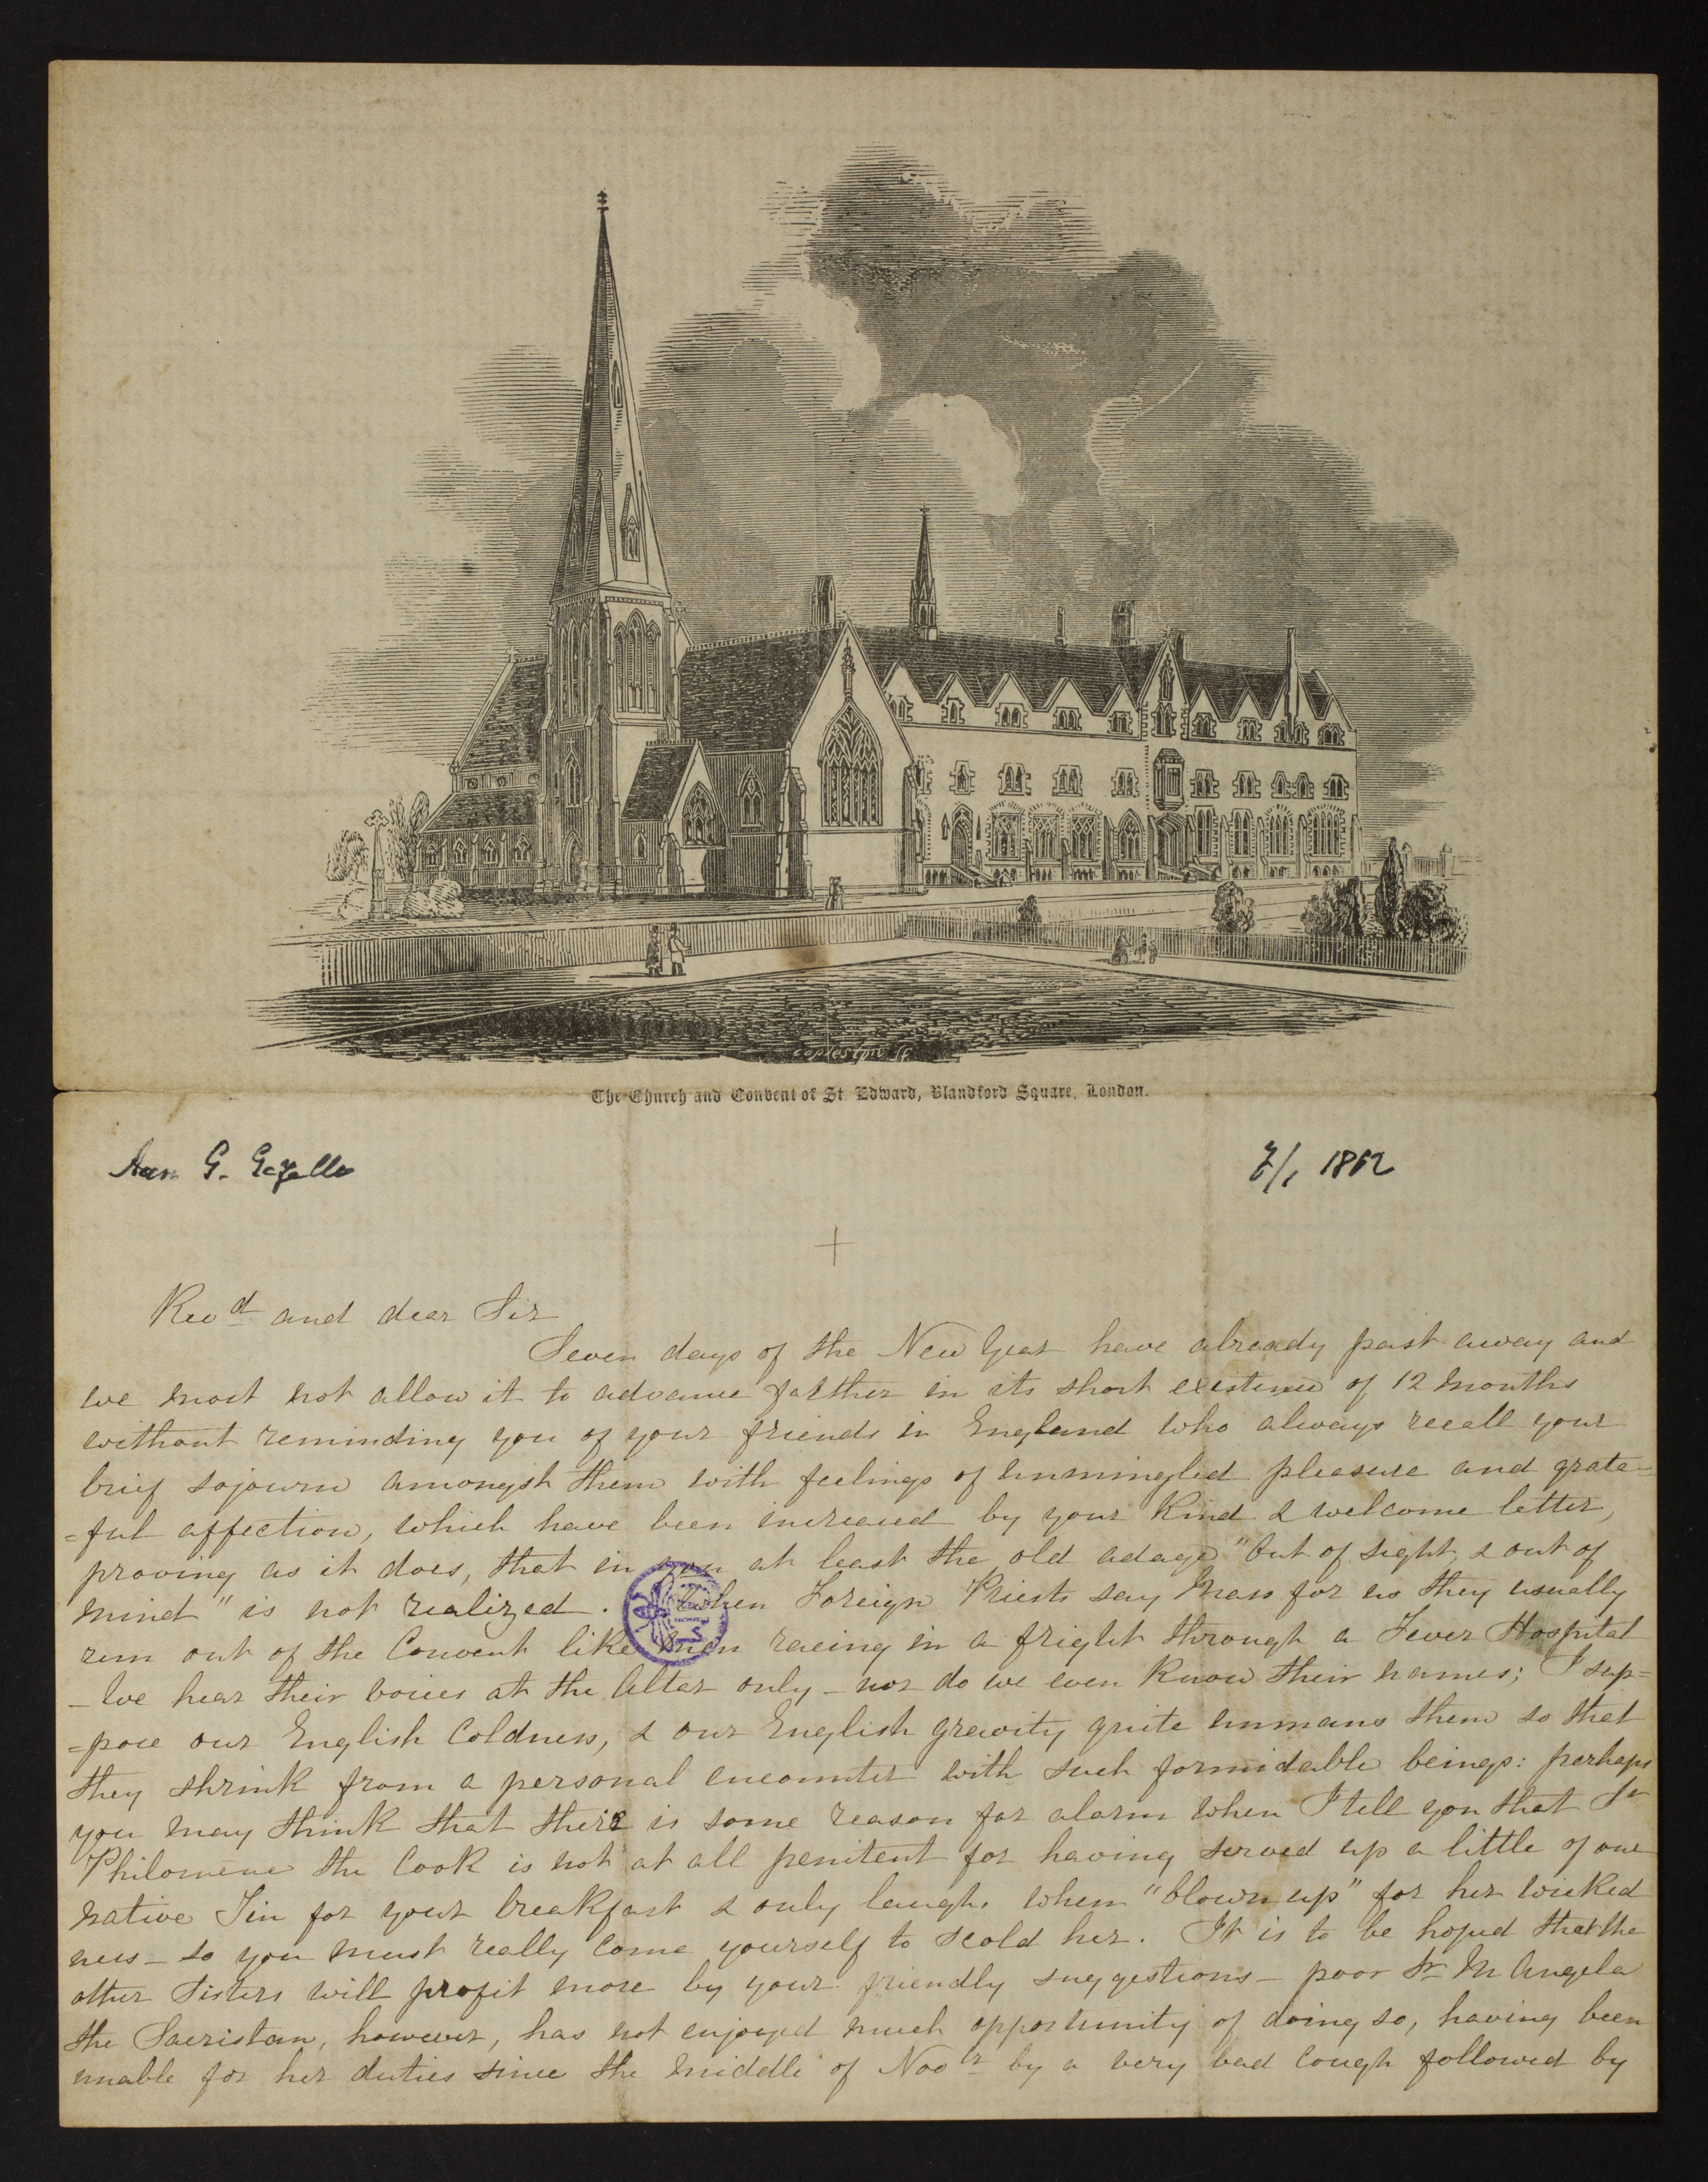 Coplestone
The Church and Convent of St. Edward, Blandford Square, London.
7/1 1862
+
Revd. and dear Sir
Seven days of the New Year have already past away and
we most not allow it to advance farther in its short existence of 12 months
without reminding you of your friends in England who always recall your
brief sojourn amongst them with feelings of unmingled pleasure and grate-
=ful affection, which have been increased by your kind & welcome letter,
proving as it does, that in you at least the old adage "out of sight, & out of
mind" is not realized. When Foreign Priests say Mass for us they usually
run out of the Convent like men racing in a fright through a Fever Hospital
- We hear their voices at the Altar only - nor do we even know their names; I sup=
=pose our English Coldness, & our English gravity quite unmans them so that
they shrink from a personal encounter with such formidable beings: perhaps
you may think that there is some reason for alarm when I tell you that Sr
Philomene the Cook is not at all penitent for having served up a little of our
native Tin for your breakfast & only laughs when "blown up" for her wicked
ness - so you must really come yourself to scold her. It is to be hoped that the
other Sisters will profit more by your friendly suggestions - poor Sr M Angela
the Sacristan, however, has not enjoyed much opportunity of doing so, having been
unable for her duties since the middle of Novr by a very bad cough followed by